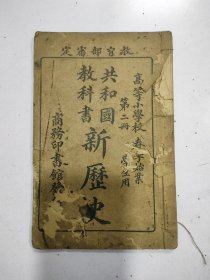 教育部審定
高等小學校 春季始業
第二冊 學生用
共和國
教科書
新歷史
商務印書館